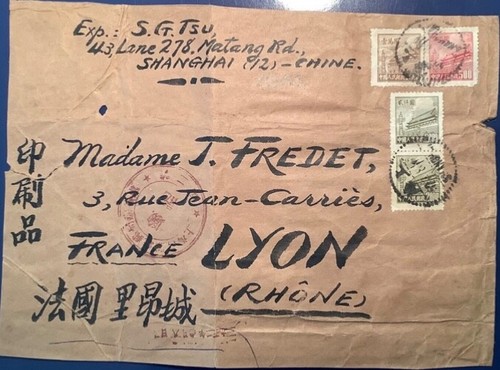 Exp.: S.G. TSU,
43, Lane 278, Matang Rd.,
SHANGHAI (12) - CHINE.
印刷品
Madame J. FREDET,
3, rue Jean-Carriès,
FRANCE LYON
(RHÔNE)
法國里昂城